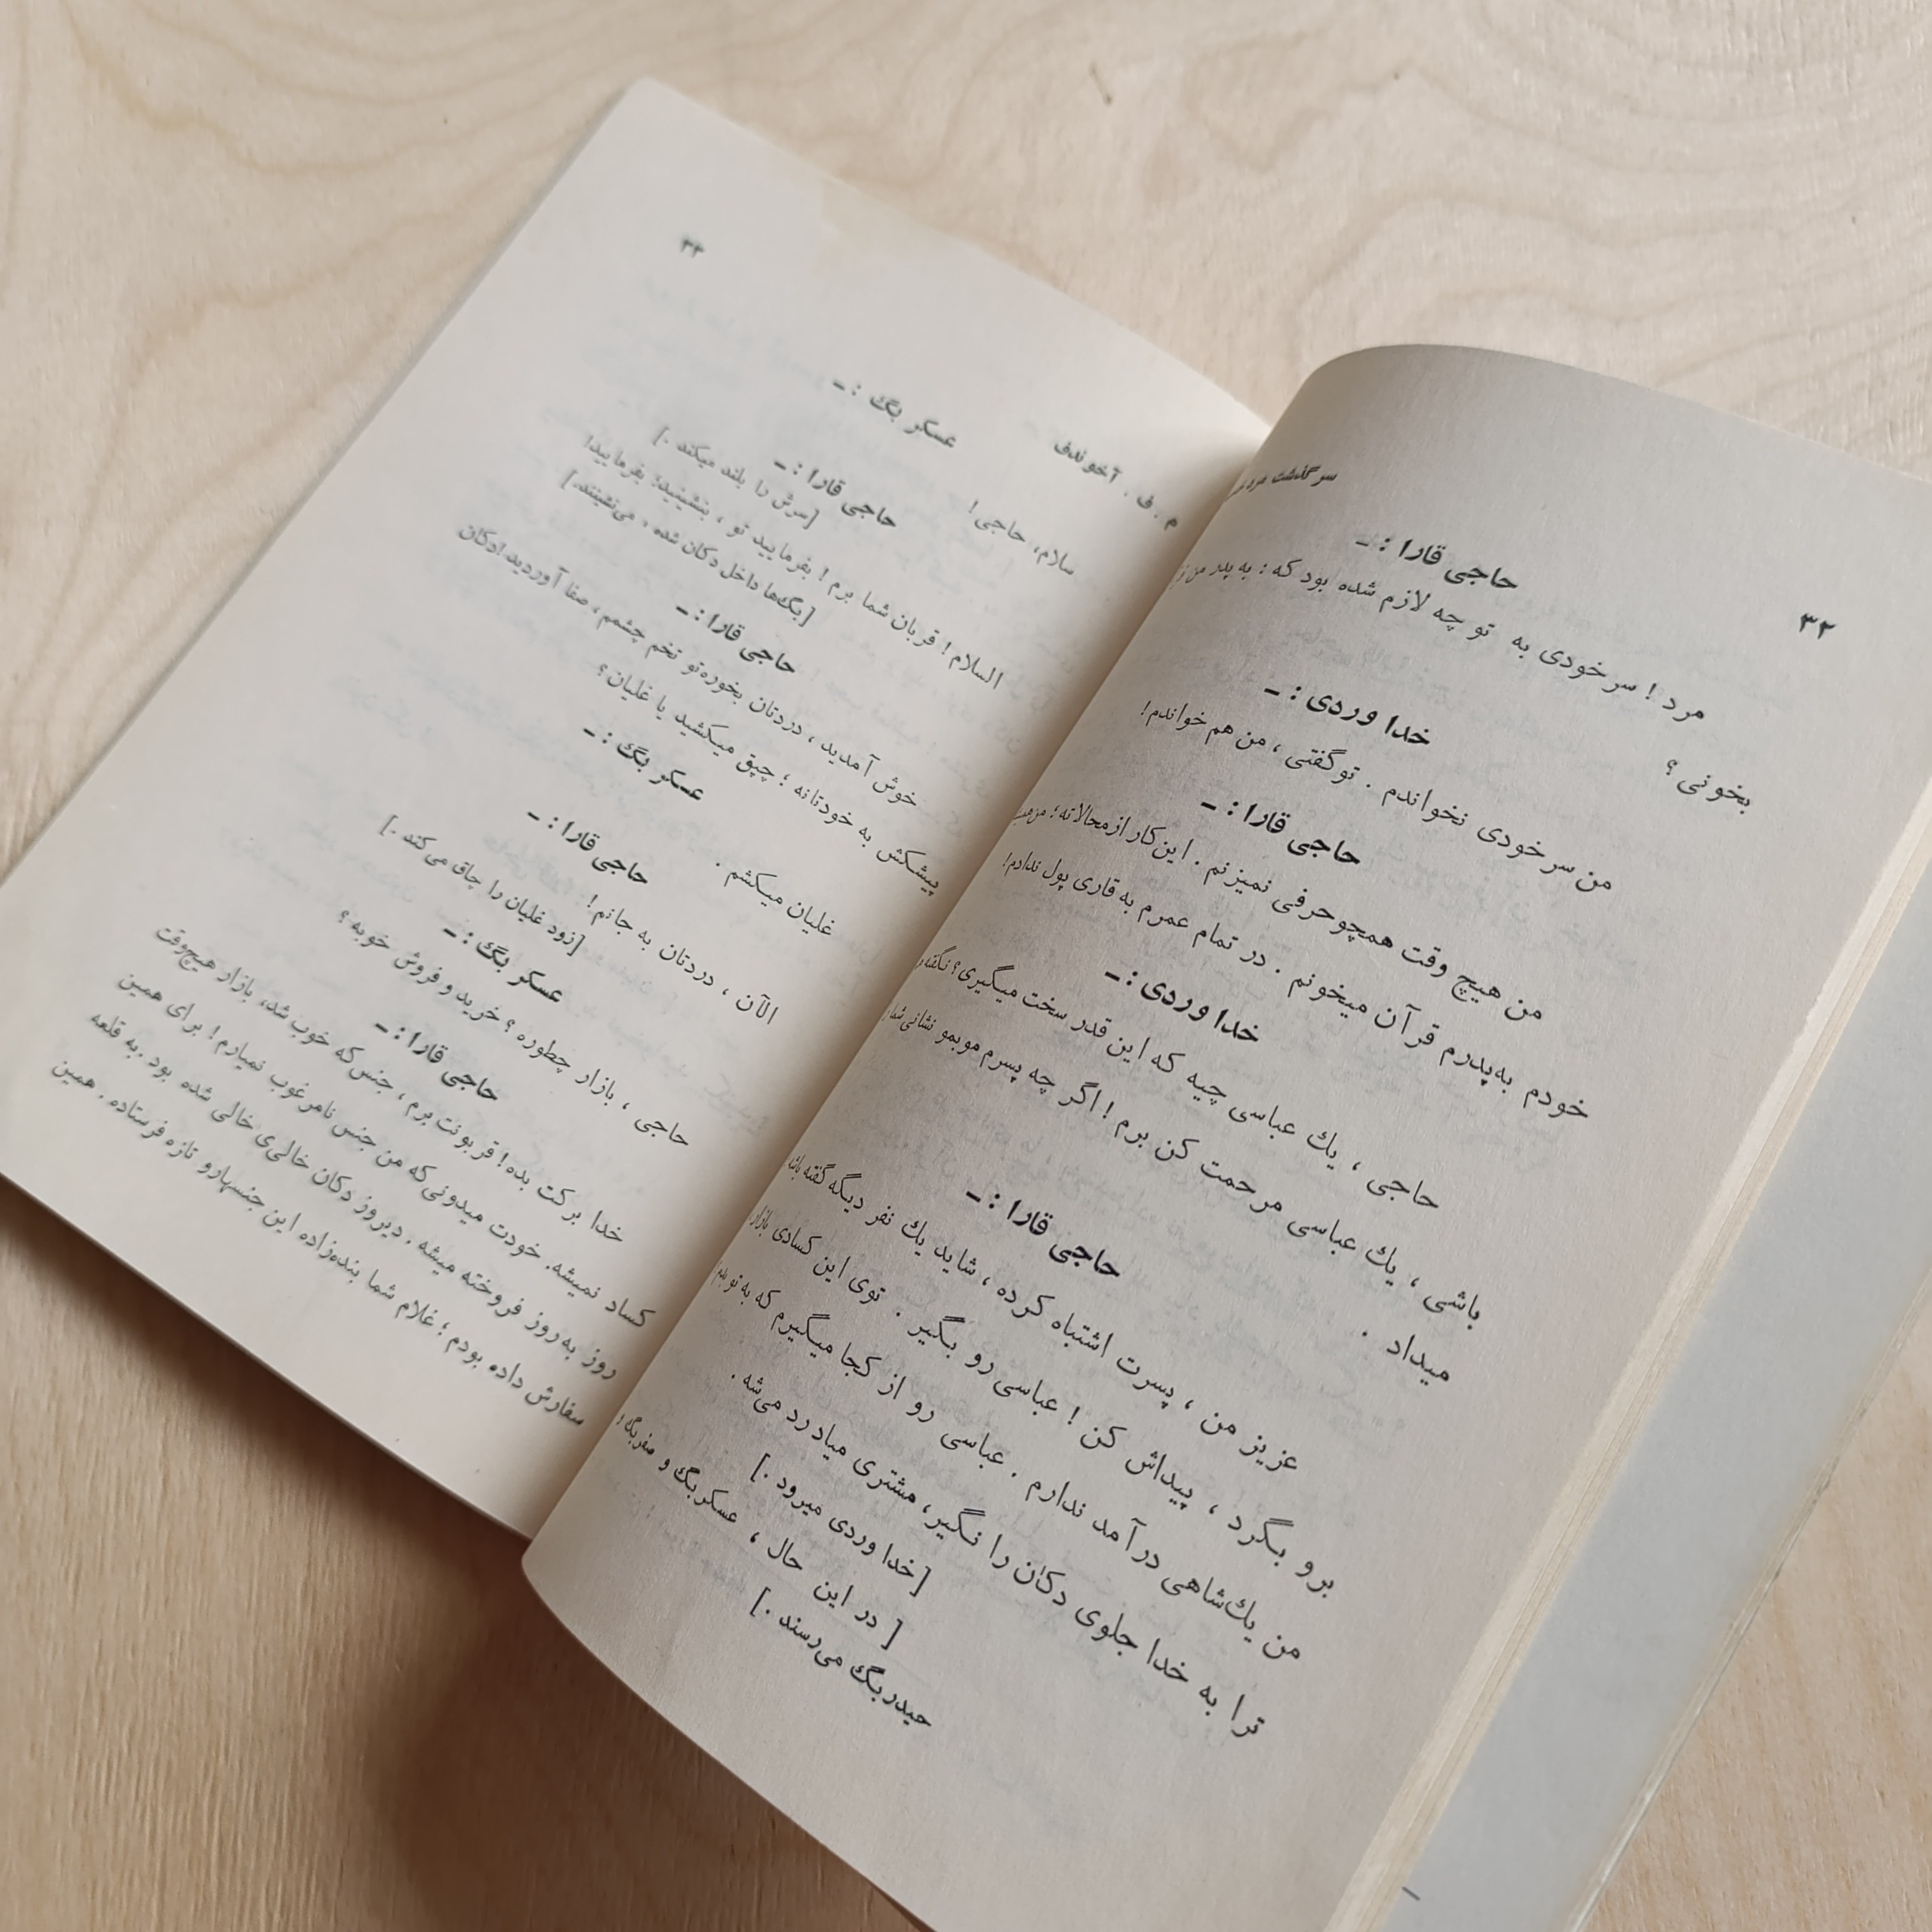 ۳۲
سرگذشت مرد
حاجی قارا : ـ
مرد ! سرخودی به تو چه لازم شده بود که : به پدر من
بخونی ؟
خدا وردی : ـ
من سرخودی نخواندم . تو گفتی ، من هم خواندم !
حاجی قارا : ـ
من هیچ وقت همچو حرفی نمیزنم . این کار از محالاته ؛
خودم به‌پدرم قرآن میخونم . در تمام عمرم به قاری پول ندادم !
خدا وردی : ـ
حاجی ، یك عباسی چیه که این قدر سخت میگیری ؟ نگفته
باشی ، یك عباسی مرحمت کن برم ! اگر چه پسرم موبمو نشانی شما
میداد .
حاجی قارا : ـ
عزیز من ، پسرت اشتباه کرده ، شاید یك نفر دیگه گفته باشه
برو بگرد ، پیداش کن ! عباسی رو بگیر . توی این کسادی بازار
من یك‌شاهی درآمد ندارم . عباسی رو از کجا میگیرم که به تو
ترا به خدا جلوی دکان را نگیر ، مشتری میاد رد می‌شه .
[خدا وردی میرود .]
[ در این حال ، عسکربگ و صفربگ
حیدربگ می‌رسند .]
م . ف . آخوندف
۳۳
عسکر بگ : ـ
سلام ، حاجی !
حاجی قارا : ـ
[سرش را بلند میکند .]
السلام ! قربان شما برم ! بفرمایید تو ، بنشینید ! بفرمایید !
[بگ‌ها داخل دکان شده ، می‌نشینند .]
حاجی قارا : ـ
خوش آمدید ، دردتان بخوره‌تو تخم چشمم ، صفا آوردید ! دکان
پیشکش به خودتانه ؛ چپق میکشید یا غلیان ؟
عسکر بگ : ـ
غلیان میکشم .
حاجی قارا : ـ
الآن ، دردتان به جانم !
[زود غلیان را چاق می‌کند .]
عسکر بگ : ـ
حاجی ، بازار چطوره ؟ خرید و فروش خوبه ؟
حاجی قارا : ـ
خدا برکت بده ! قربونت برم ، جنس‌که خوب شد ، بازار هیچ‌وقت
کساد نمیشه . خودت میدونی‌که من جنس نامرغوب نمیارم ! برای همین
روز به‌روز فروخته میشه . دیروز دکان خالی‌ی خالی شده بود . به قلعه
سفارش داده بودم ؛ غلام شما بنده‌زاده این جنسهارو تازه فرستاده . همین